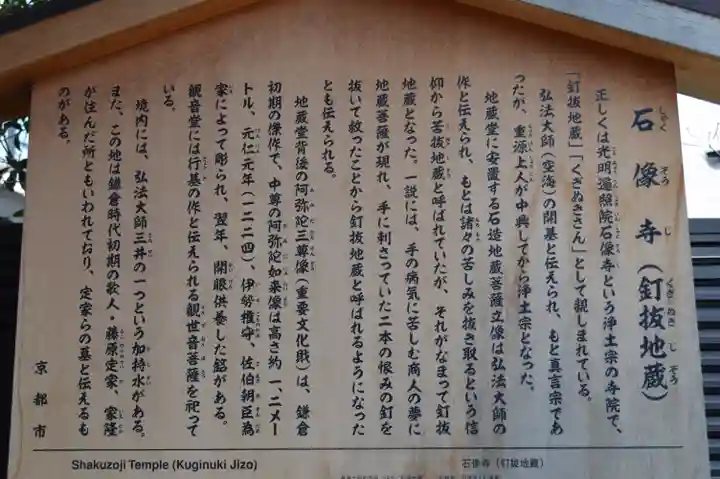 石像寺(釘抜地蔵)
正しくは光明遍照院石像寺という浄土宗の寺院で、
「釘抜地蔵」「くぎぬきさん」として親しまれている。
弘法大師(空海)の開基と伝えられ、もと真言宗であ
ったが、重源上人が中興してから浄土宗となった。
地蔵堂に安置する石造地蔵菩薩立像は弘法大師の
作と伝えられ、もとは諸々の苦しみを抜き取るという信
仰から苦抜地蔵と呼ばれていたが、それがなまって釘抜
地蔵となった。一説には、手の病気に苦しむ商人の夢に
地蔵菩薩が現れ、手に刺さっていた二本の恨みの釘を
抜いて救ったことから釘抜地蔵と呼ばれるようになった
とも伝えられる。
地蔵堂背後の阿弥陀三尊像(重要文化財)は、鎌倉
初期の傑作で、中尊の阿弥陀如来像は高さ約一、二メー
トル、元仁元年(一二二四)、伊勢権守、佐伯朝臣為
家によって彫られ、翌年、開眼供養した銘がある。
観音堂には行基の作と伝えられる観世音菩薩を祀って
いる。
境内には、弘法大師三井の一つという加持水がある。
また、この地は鎌倉時代初期の歌人・藤原定家、家隆
が住んだ所ともいわれており、定家らの墓と伝えるも
のがある。
京都市
Shakuzoji Temple (Kuginuki Jizo)
石像寺(釘抜地蔵)